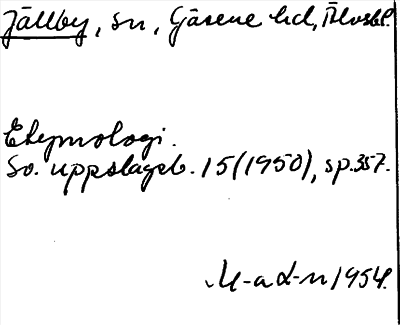 Jällby, sn, Gäsene hd, Älvsbl.
Etymologi.
Sv. uppslagsb. 15 (1950), sp. 357.
M-a L-n 1954.